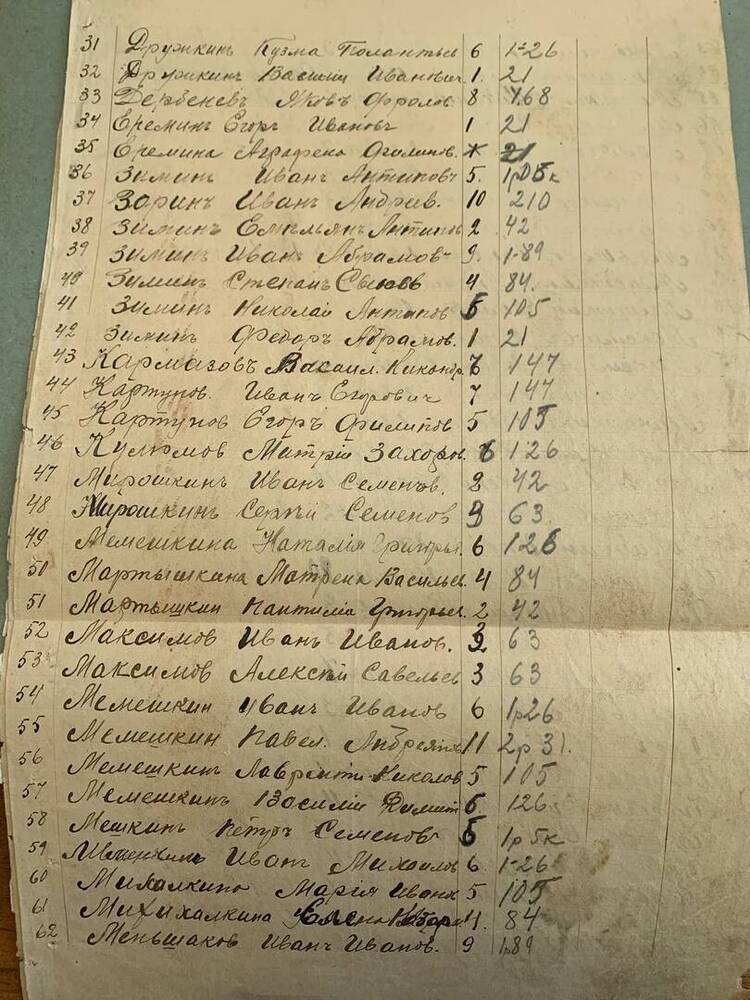 31 Дружкинъ Кузма 6 1-26
32 Дружкинъ Василий Иванович. 1. 21
33 Дербеневъ Яковъ Фролов 8 168
34 Ереминъ Егоръ Ивановъ 1 21
35 Еремина Аграфена 21
36 Зиминъ Иванъ Антиповъ 5. 1р05к
37 Заринъ Иванъ Андрив. 10 210
38 Зиминъ Емильянъ Антипов 2 42
39 Зиминъ Иванъ Абрамовъ 9. 1-89
40 Зиминъ Степанъ 4 84.
41 Зиминъ Николай Антипов 5 105
42 Зиминъ Федоръ Абрамов. 1 21
43 Кармазовъ Васиил. Никонор. 7 147
44 Картунов. Иванъ Егорович 7 147
45 Картунов Егоръ Филипов 5 105
46 Кулюмов Митрій Захаров. 6 1-26
47 Мирошкинъ Иванъ Семенов. 2 42
48 Мирошкинъ Сергъй Семенов 3 63.
49 Мемешкина Наталія Григорья 6 126
50 Мартышкина Матрена Васильев. 4 84
51 Мартышкин Григорьев. 2 42
52 Максимов Иванъ Иванов. 3 63
53 Максимов Алексъй Савельев 3 63
54 Мемешкин Иванъ Иванов 6 1р26
55 Мемешкин Павел. Андреянов 11 2р31.
56 Мемешкинъ Лаврентій Николов 5 105
57 Мемешкинъ Василій Димит 6 126
58 Мешкинъ Петръ Семеновъ 5 1р5к
59 Иванъ Михаилов 6. 1-26
60 Михалкина Марія Иванов 5 105
61 Елена 4. 84
62 Меньшаков Иванъ Иванов. 9 1р89